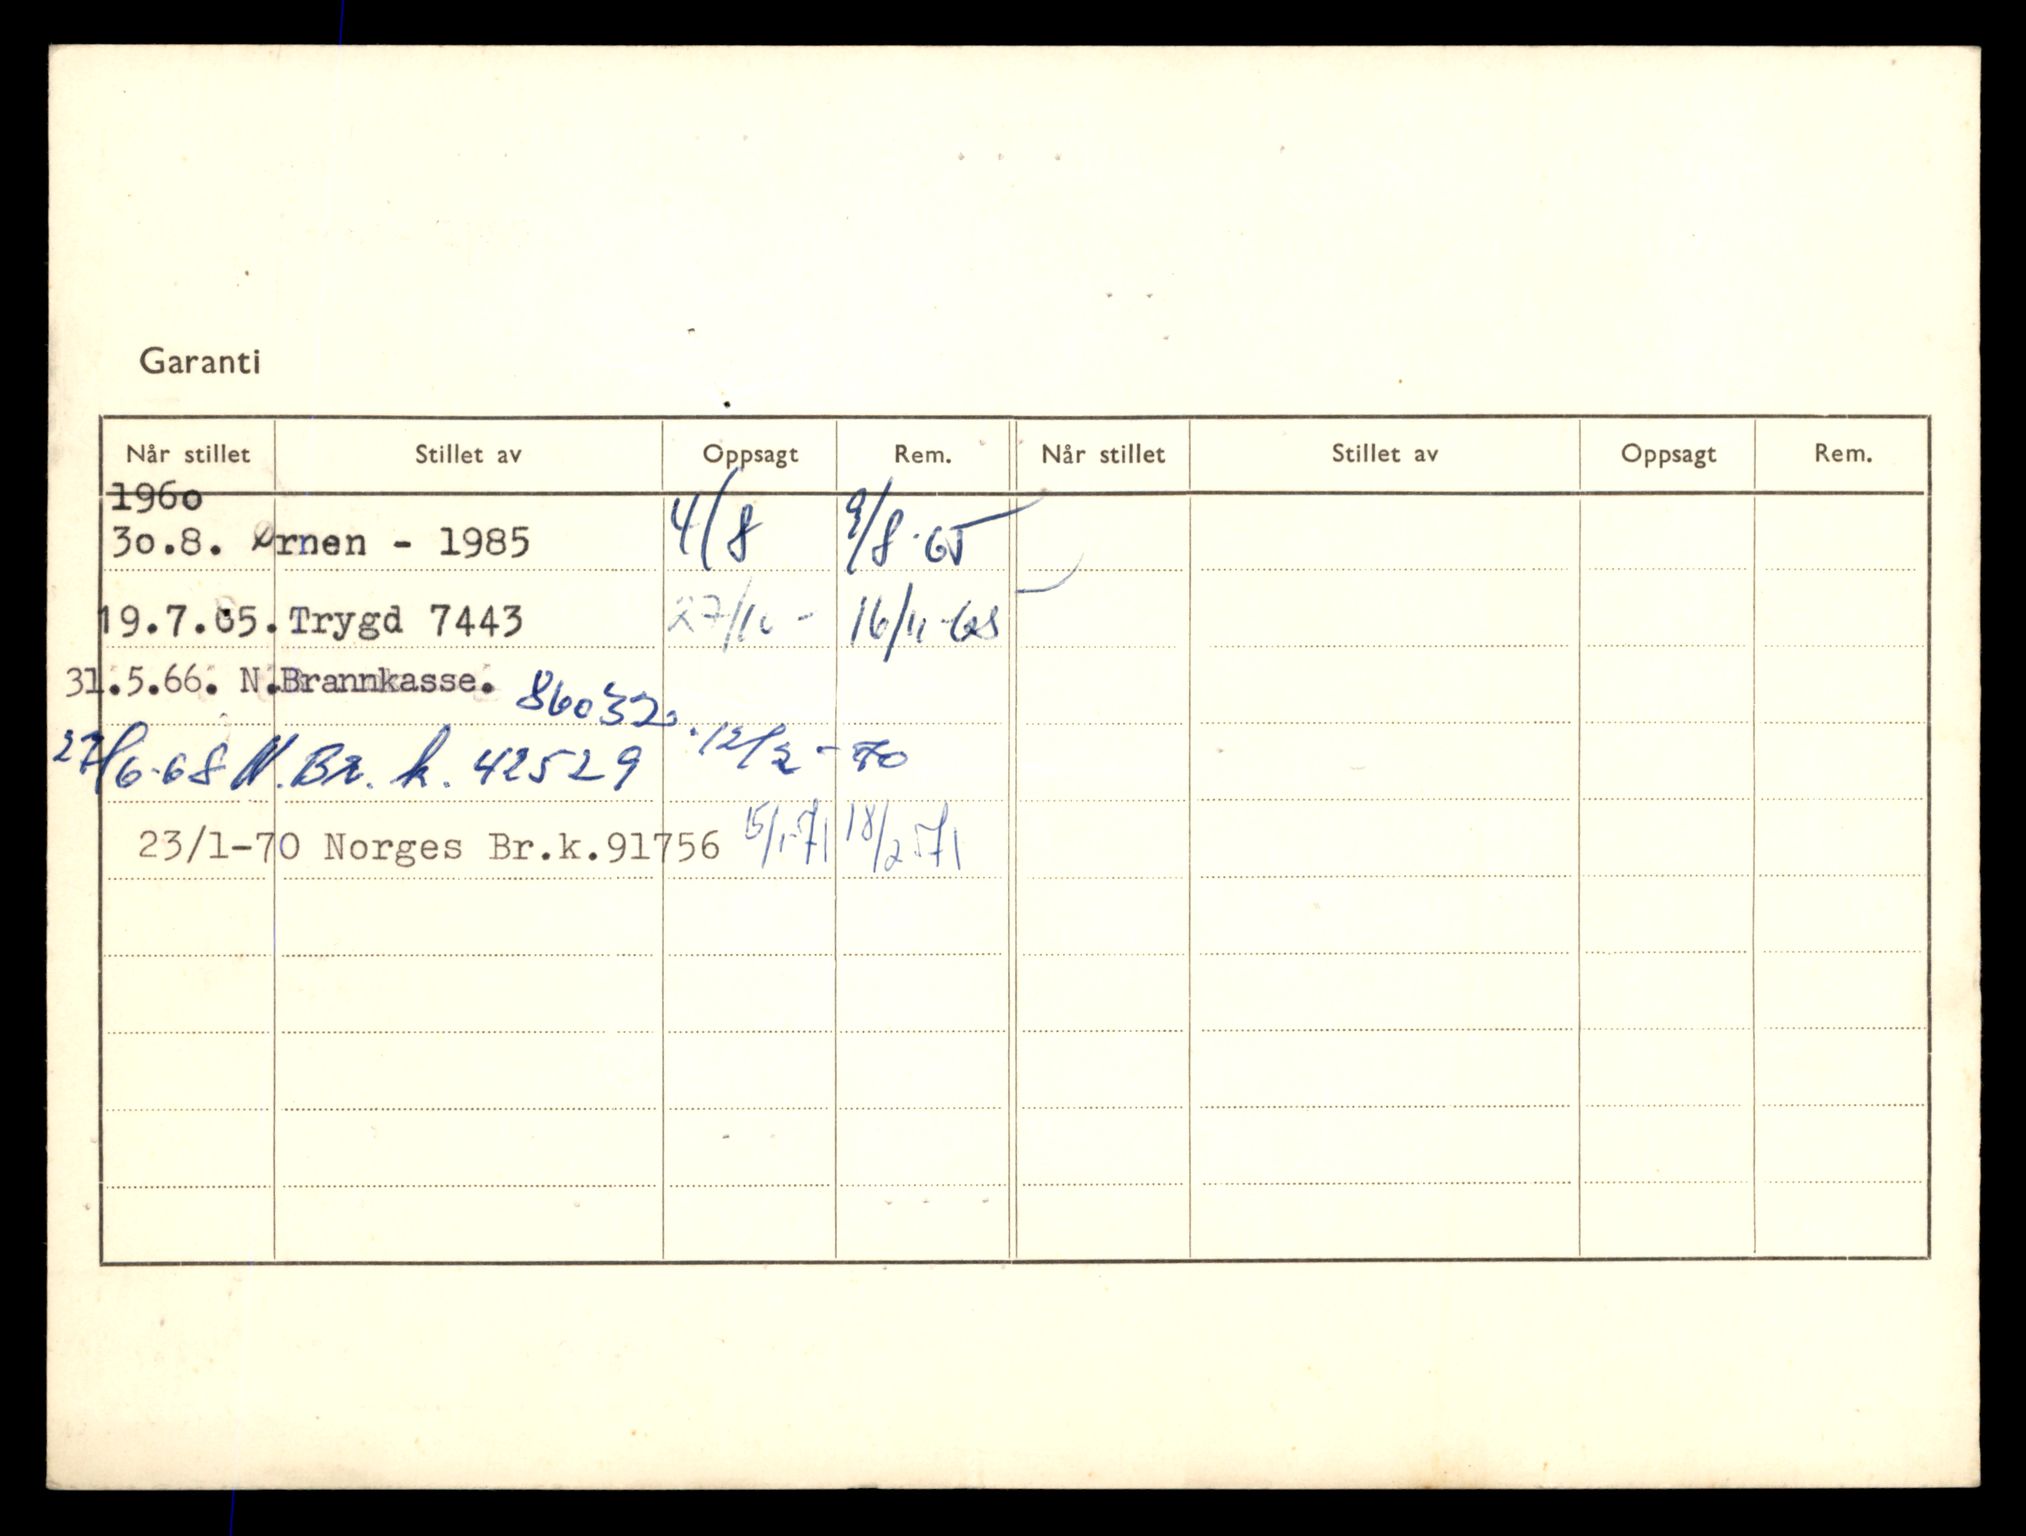 Garanti
Når stillet Stillet av Oppsagt Rem. Når stillet Stillet av Oppsagt Rem.
1960
30.8. Ørnen - 1985 4/8 9/8-65
19.7.65. Trygd 7443 27/10 - 16/11-68
31.5.66. N.Brannkasse. 86032
27/6-68 N. Br. k. 42529 12/2-70
23/1-70 Norges Br.k.91756 15/1-71 18/2-71